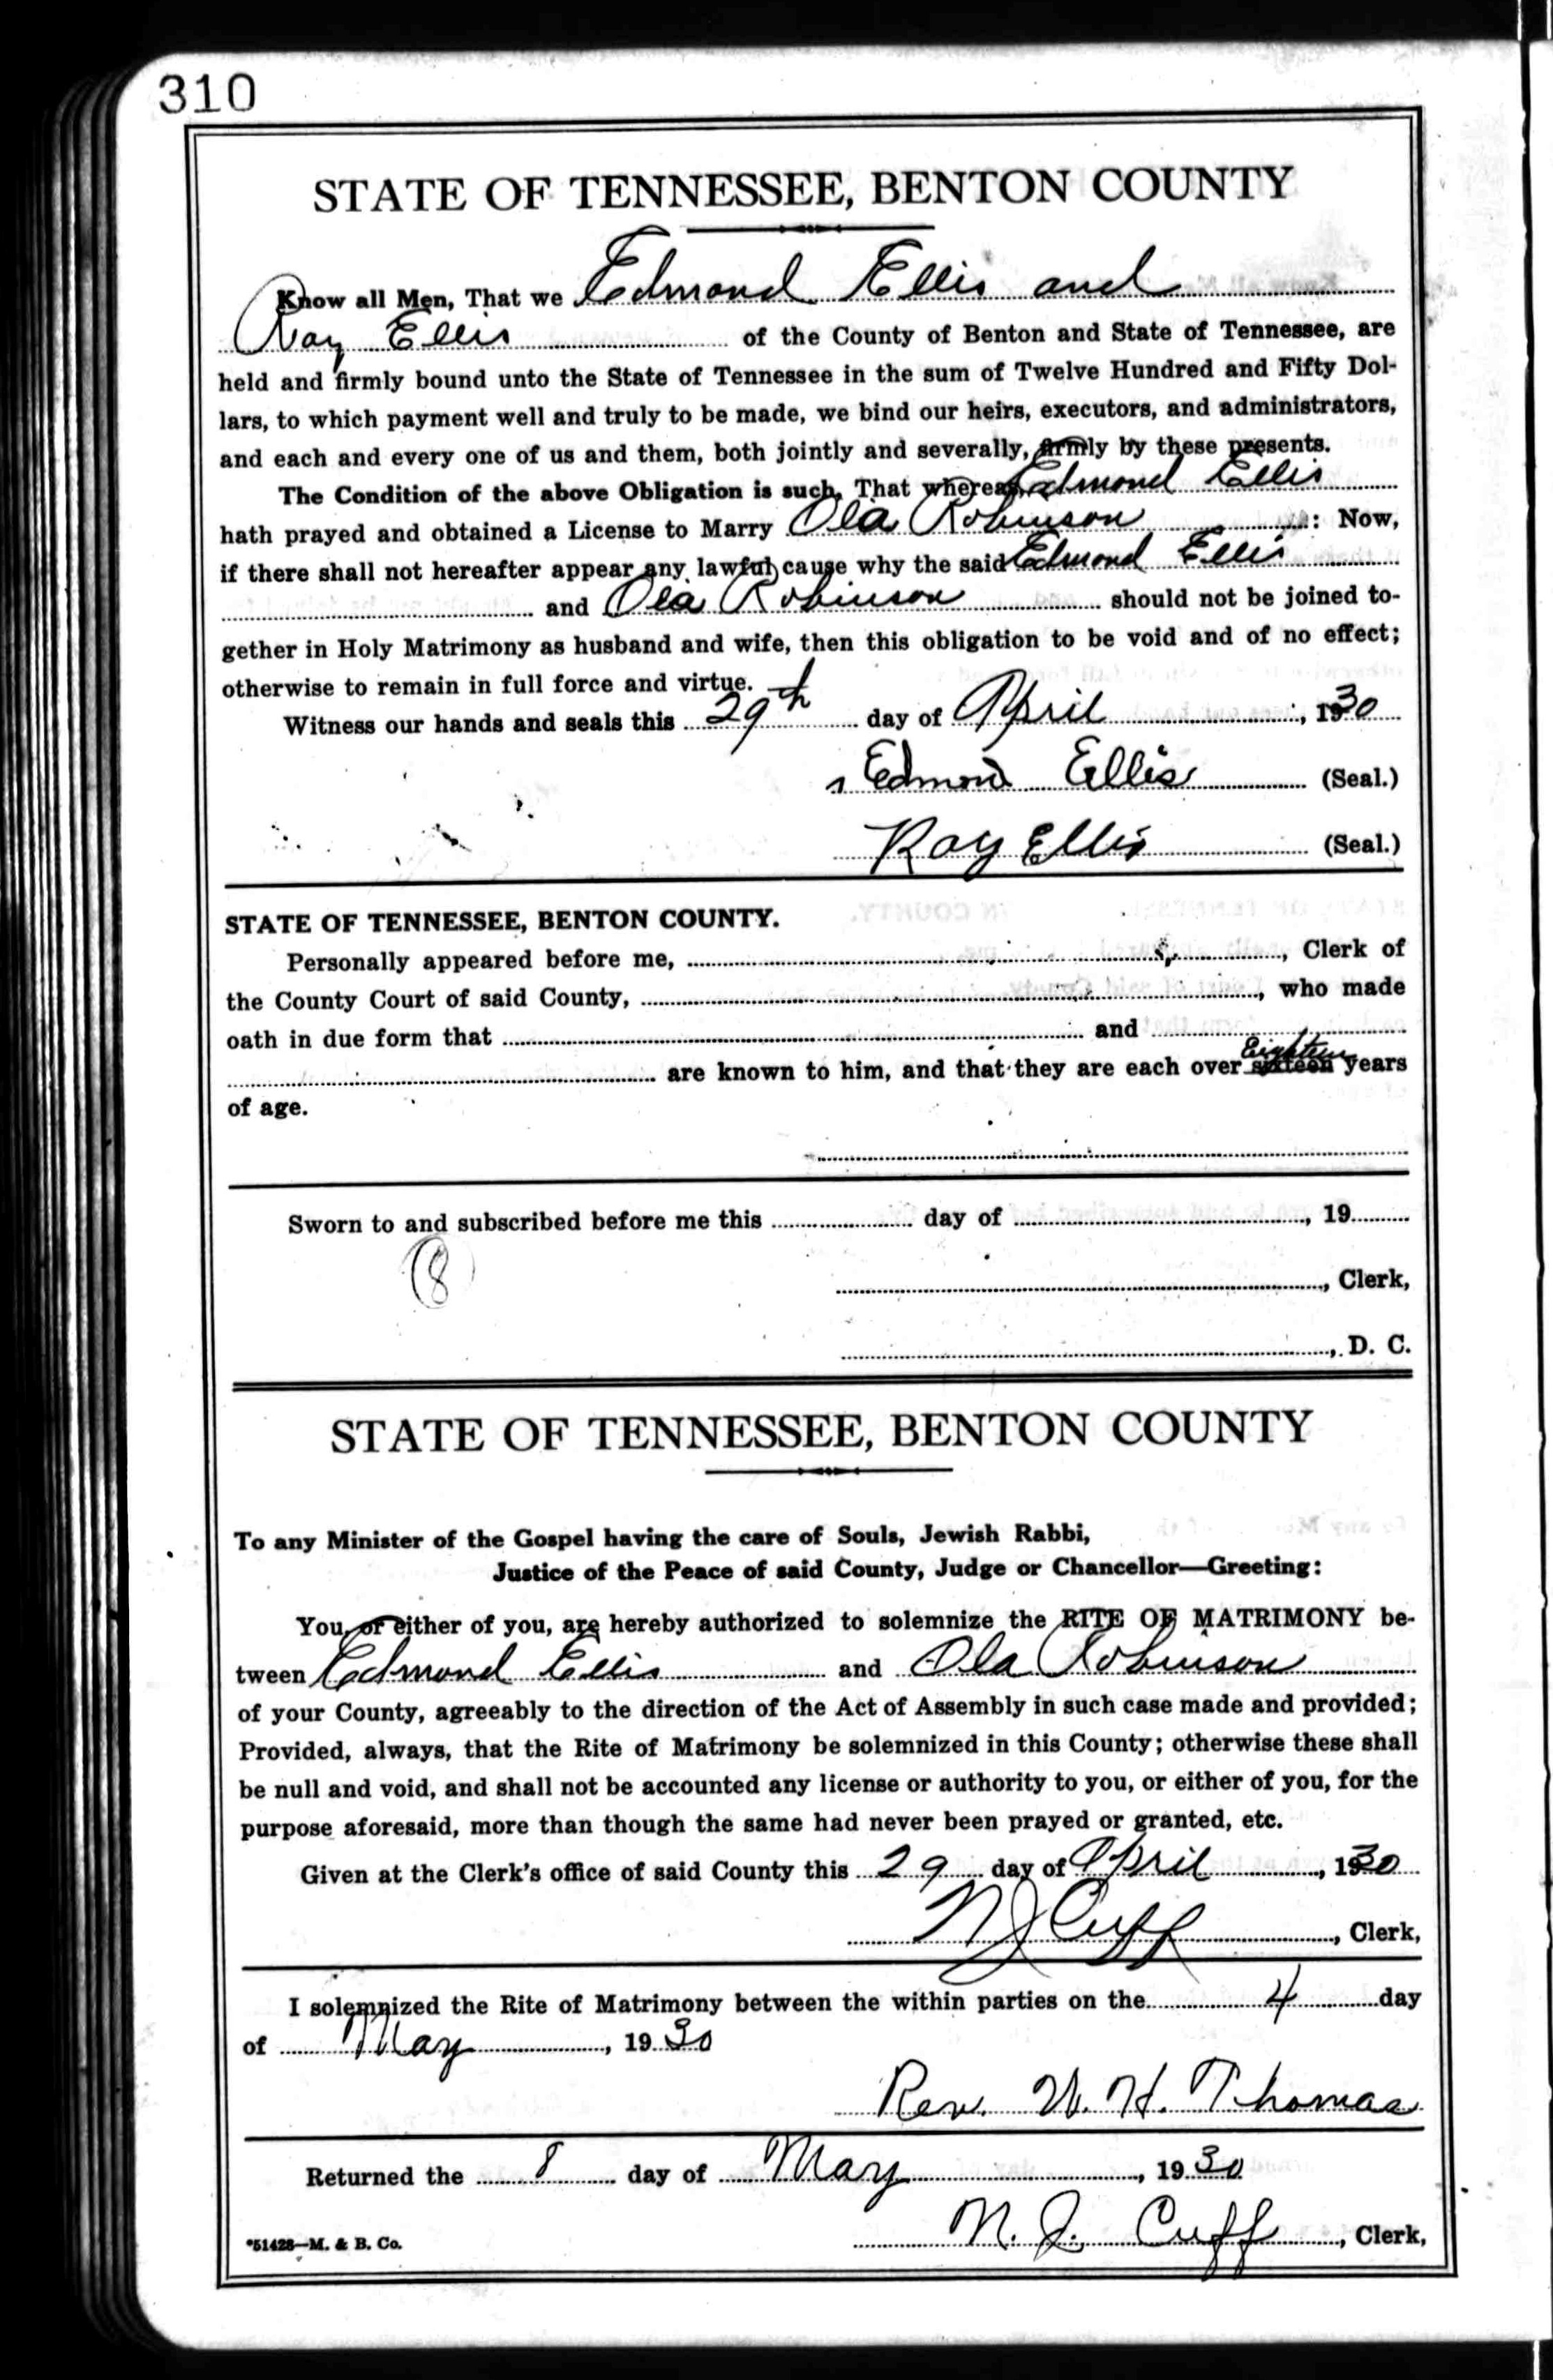 310
STATE OF TENNESSEE, BENTON COUNTY
Know all Men, That we Edmond Ellis and
Ray Ellis of the County of Benton and State of Tennessee, are
held and firmly bound unto the State of Tennessee in the sum of Twelve Hundred and Fifty Dol-
lars, to which payment well and truly to be made, we bind our heirs, executors, and administrators,
and each and every one of us and them, both jointly and severally, firmly by these presents.
The Condition of the above Obligation is such, That whereas Edmond Ellis
hath prayed and obtained a License to Marry Ola Robinson : Now,
if there shall not hereafter appear any lawful cause why the said Edmond Ellis
and Ola Robinson should not be joined to-
gether in Holy Matrimony as husband and wife, then this obligation to be void and of no effect;
otherwise to remain in full force and virtue.
Witness our hands and seals this 29th day of April, 1930
Edmond Ellis (Seal.)
Ray Ellis (Seal.)
STATE OF TENNESSEE, BENTON COUNTY.
Personally appeared before me, , Clerk of
the County Court of said County, , who made
oath in due form that and
are known to him, and that they are each over Eighteen sixteen years
of age.
Sworn to and subscribed before me this day of , 19
(8)
, Clerk,
, D. C.
STATE OF TENNESSEE, BENTON COUNTY
To any Minister of the Gospel having the care of Souls, Jewish Rabbi,
Justice of the Peace of said County, Judge or Chancellor—Greeting:
You, or either of you, are hereby authorized to solemnize the RITE OF MATRIMONY be-
tween Edmond Ellis and Ola Robinson
of your County, agreeably to the direction of the Act of Assembly in such case made and provided;
Provided, always, that the Rite of Matrimony be solemnized in this County; otherwise these shall
be null and void, and shall not be accounted any license or authority to you, or either of you, for the
purpose aforesaid, more than though the same had never been prayed or granted, etc.
Given at the Clerk's office of said County this 29 day of April, 1930
N J Cuff, Clerk,
I solemnized the Rite of Matrimony between the within parties on the 4 day
of May, 1930
Rev. W. H. Thomas
Returned the 8 day of May, 1930
N. J. Cuff, Clerk,
*51428—M. & B. Co.